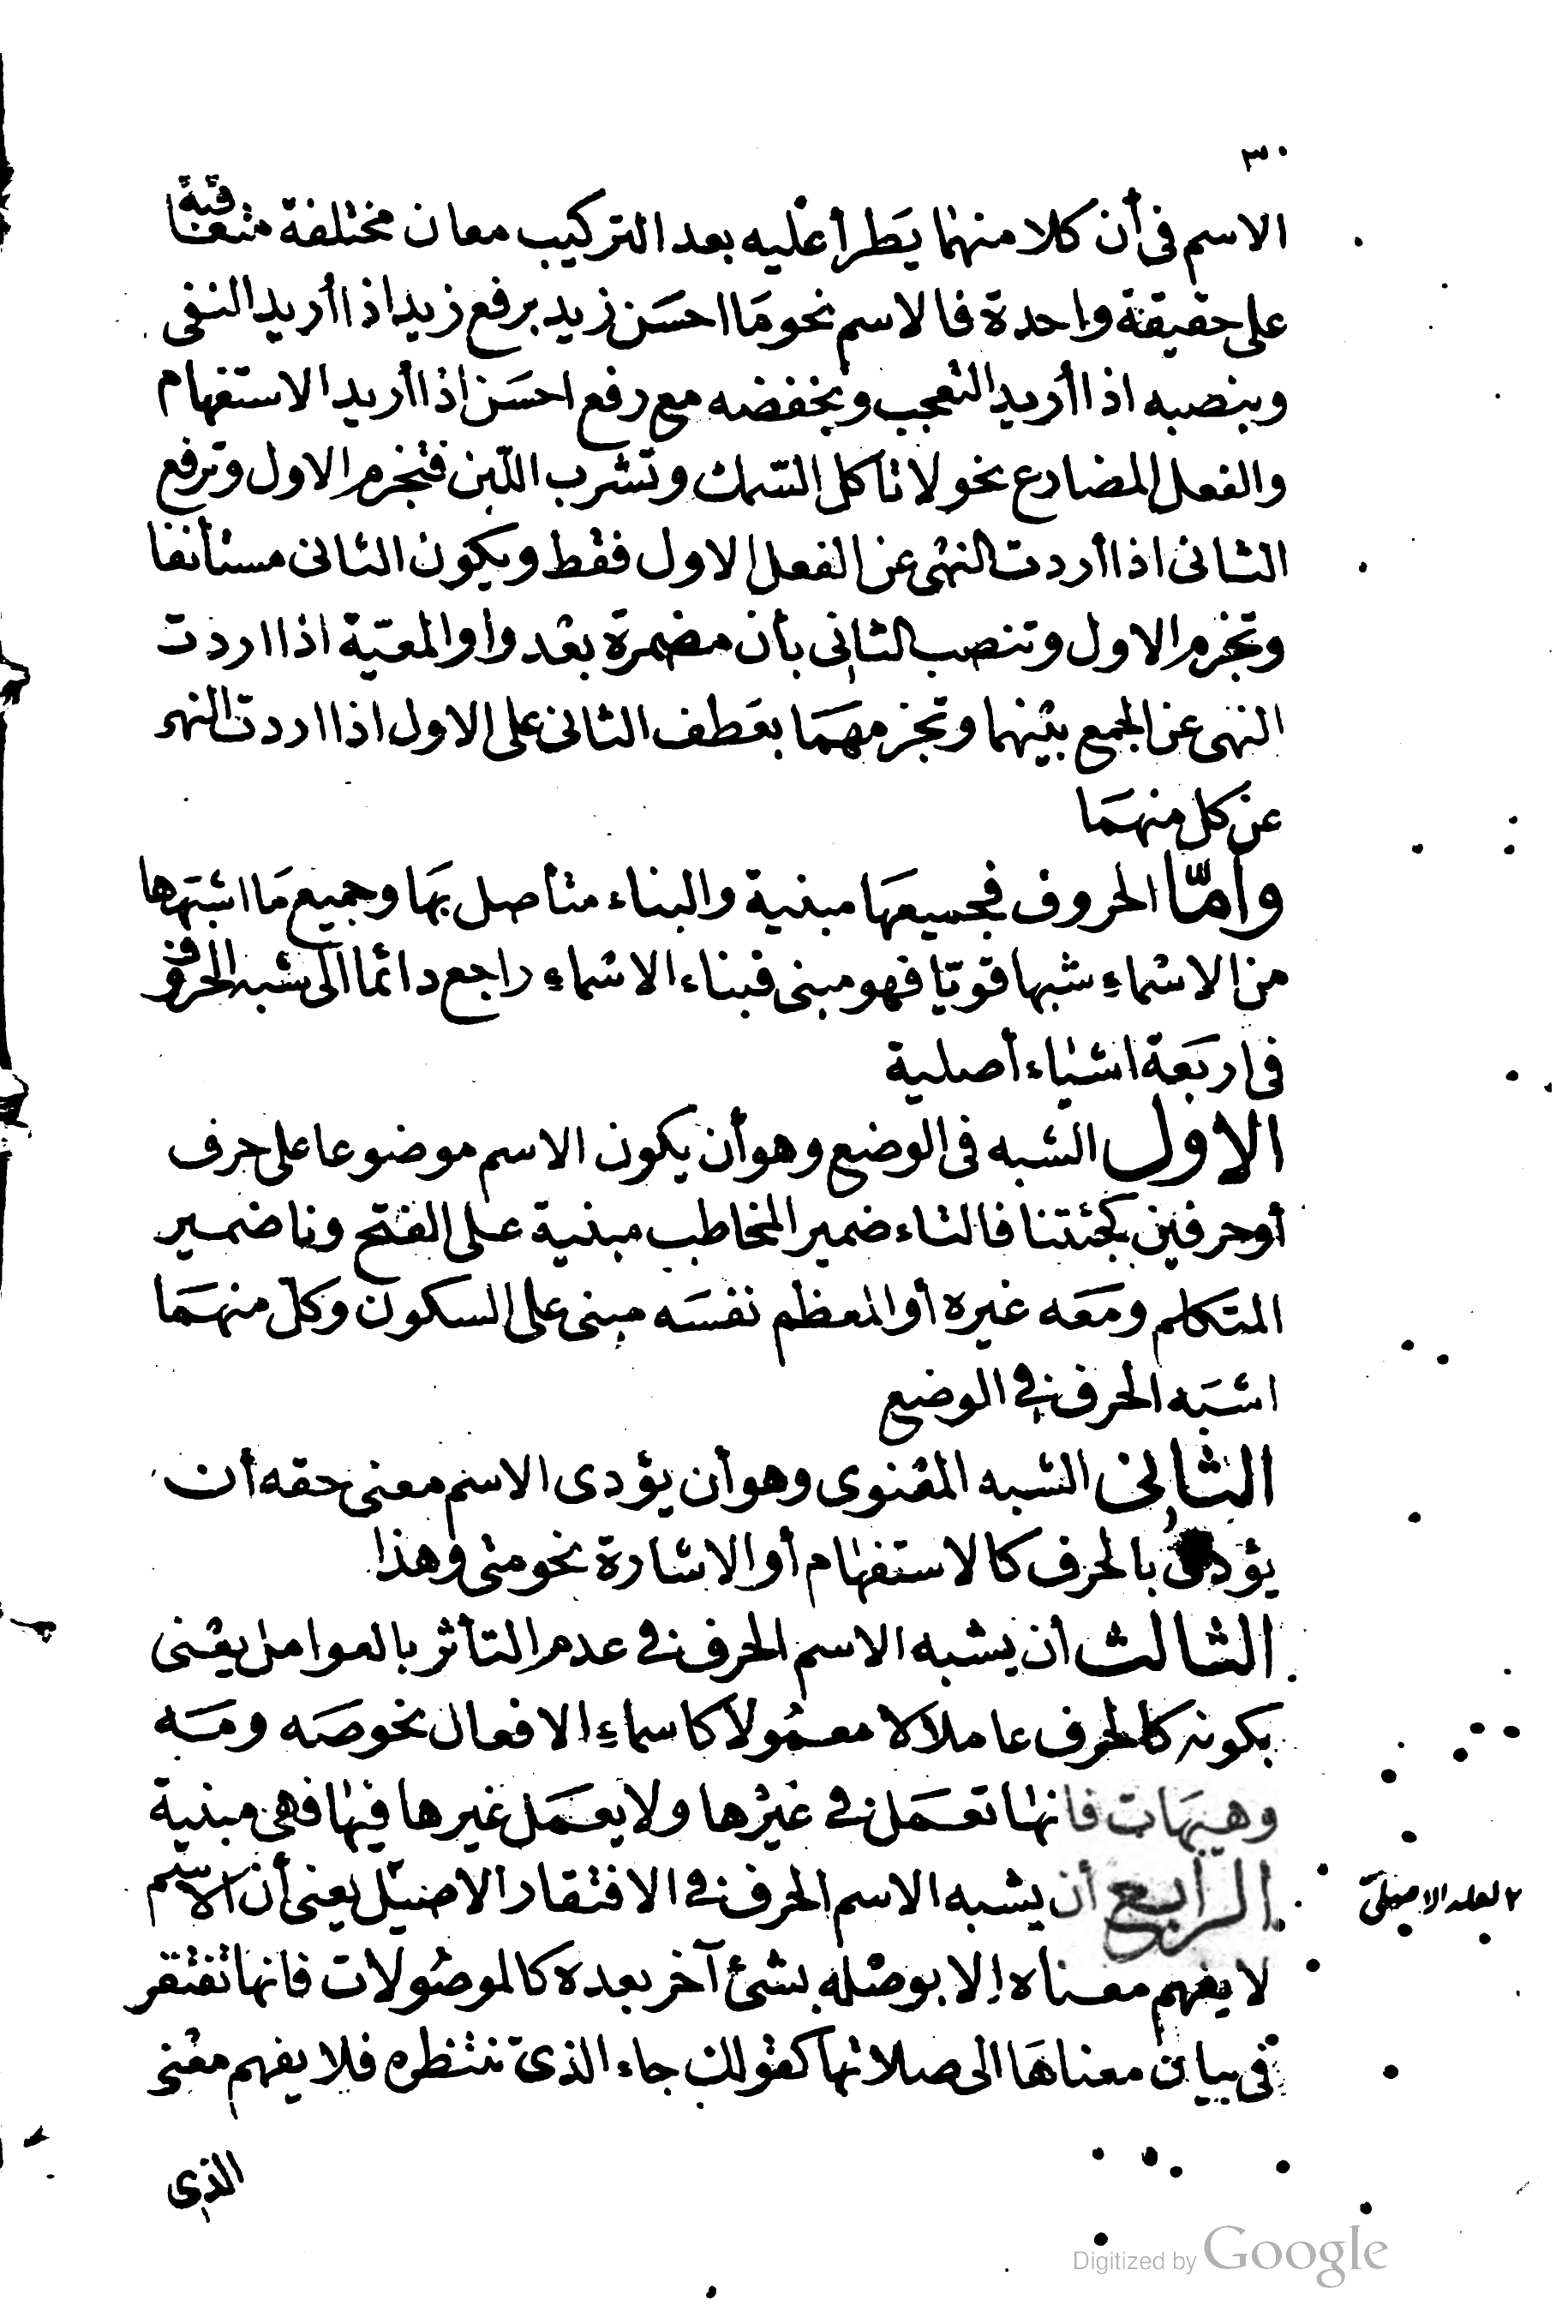 ٣٠
الاسم فى أن كلا منهما يَطرأ عليه بعد التركيب معان مختلفة متعاقبة
على حقيقة واحدة فالاسم نحو مَا احسَن زيد برفع زيد اذا أريد النفى
وبنصبه اذا أريد التعجب وبخفضه مع رفع احسَن اذا أريد الاستفهام
والفعل المضارع نحو لا تأكل السّمك وتشرب اللّبن فتجزم الاول وترفع
الثانى اذا أردت النهْى عن الفعل الاول فقط ويكون الثانى مستأنفا
وتجزم الاول وتنصب الثانى بأن مضمرة بعْد واو المعيّة اذا اردت
النهى عن الجمع بيْنهما وتجزمهمَا بعَطف الثانى على الاول اذا اردت النهى
عن كل منهمَا
وأمّا الحروف فجميعهَا مبنية والبناء متأصل بهَا وجميع مَا اشبهَها
من الاسْماءِ شبها قويّا فهو مبنى فبناء الاسْماءِ راجع دائما الى شبه الحروف
فى اربَعَة اشيَاء أصلية
الاول الشبه فى الوضع وهو أن يكون الاسم موضوعا على حرف
أو حرفين كجئتنا فالتاء ضمير المخاطب مبنية على الفتح ونا ضمير
المتكلم ومَعَه غيره أو المعظم نفسَه مبنى على السكون وكل منهمَا
اشبَه الحرف فى الوضع
الثانى الشبه المعْنوى وهو أن يؤدى الاسم معنى حقه أن
يؤدى بالحرف كالاستفهَام أو الاشارة نحو متى وهذا
الثالث أن يشبه الاسم الحرف فى عدم التأثر بالعوامل يعْنى
بكونه كالحرف عاملا لا معمُولا كاسماءِ الافعال نحو صَه ومَه
وهيهَات فانهَا تعمَل فى غيْرها ولا يعمَل غيرها فيهَا فهى مبنية
الرابع أن يشبه الاسم الحرف فى الافتقار الاصيل يعنى أن الاسم
٢ لعله الاصلىّ
لا يفهم معناه إلا بوصْله بشئ آخر بعده كالموصُولات فانها تفتقر
فى بيان معناهَا الى صلاتها كقولك جاء الذى ننتظره فلا يفهم معْنى
الذى
Digitized by Google